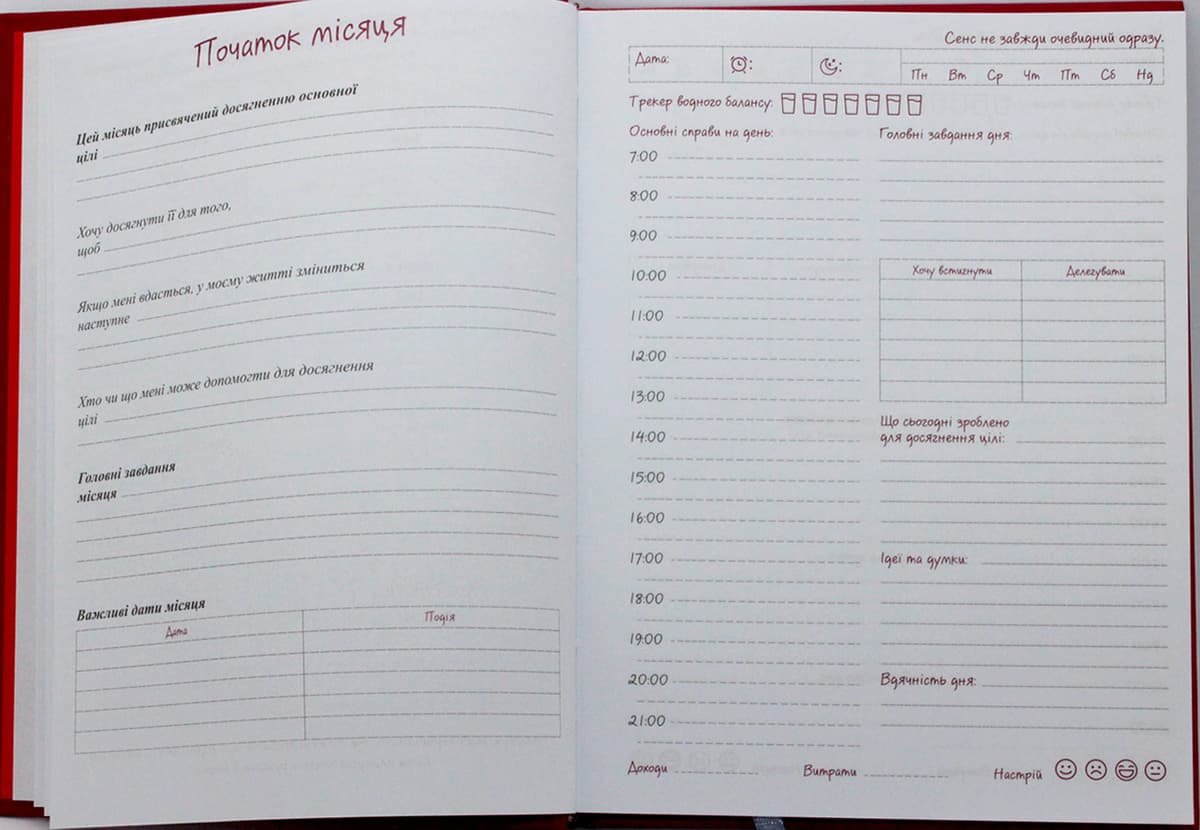 Початок місяця
Цей місяць присвячений досягненню основної
цілі
Хочу досягнути її для того,
щоб
Якщо мені вдасться, у моєму житті зміниться
наступне
Хто чи що мені може допомогти для досягнення
цілі
Головні завдання
місяця
Важливі дати місяця
Дата Подія
Сенс не завжди очевидний одразу.
Дата: : :
Пн Вт Ср Чт Пт Сб Нд
Трекер водного балансу:
Основні справи на день:
7:00
8:00
9:00
10:00
11:00
12:00
13:00
14:00
15:00
16:00
17:00
18:00
19:00
20:00
21:00
Головні завдання дня:
Хочу встигнути Делегувати
Що сьогодні зроблено
для досягнення цілі:
Ідеї та думки:
Вдячність дня:
Доходи Витрати Настрій